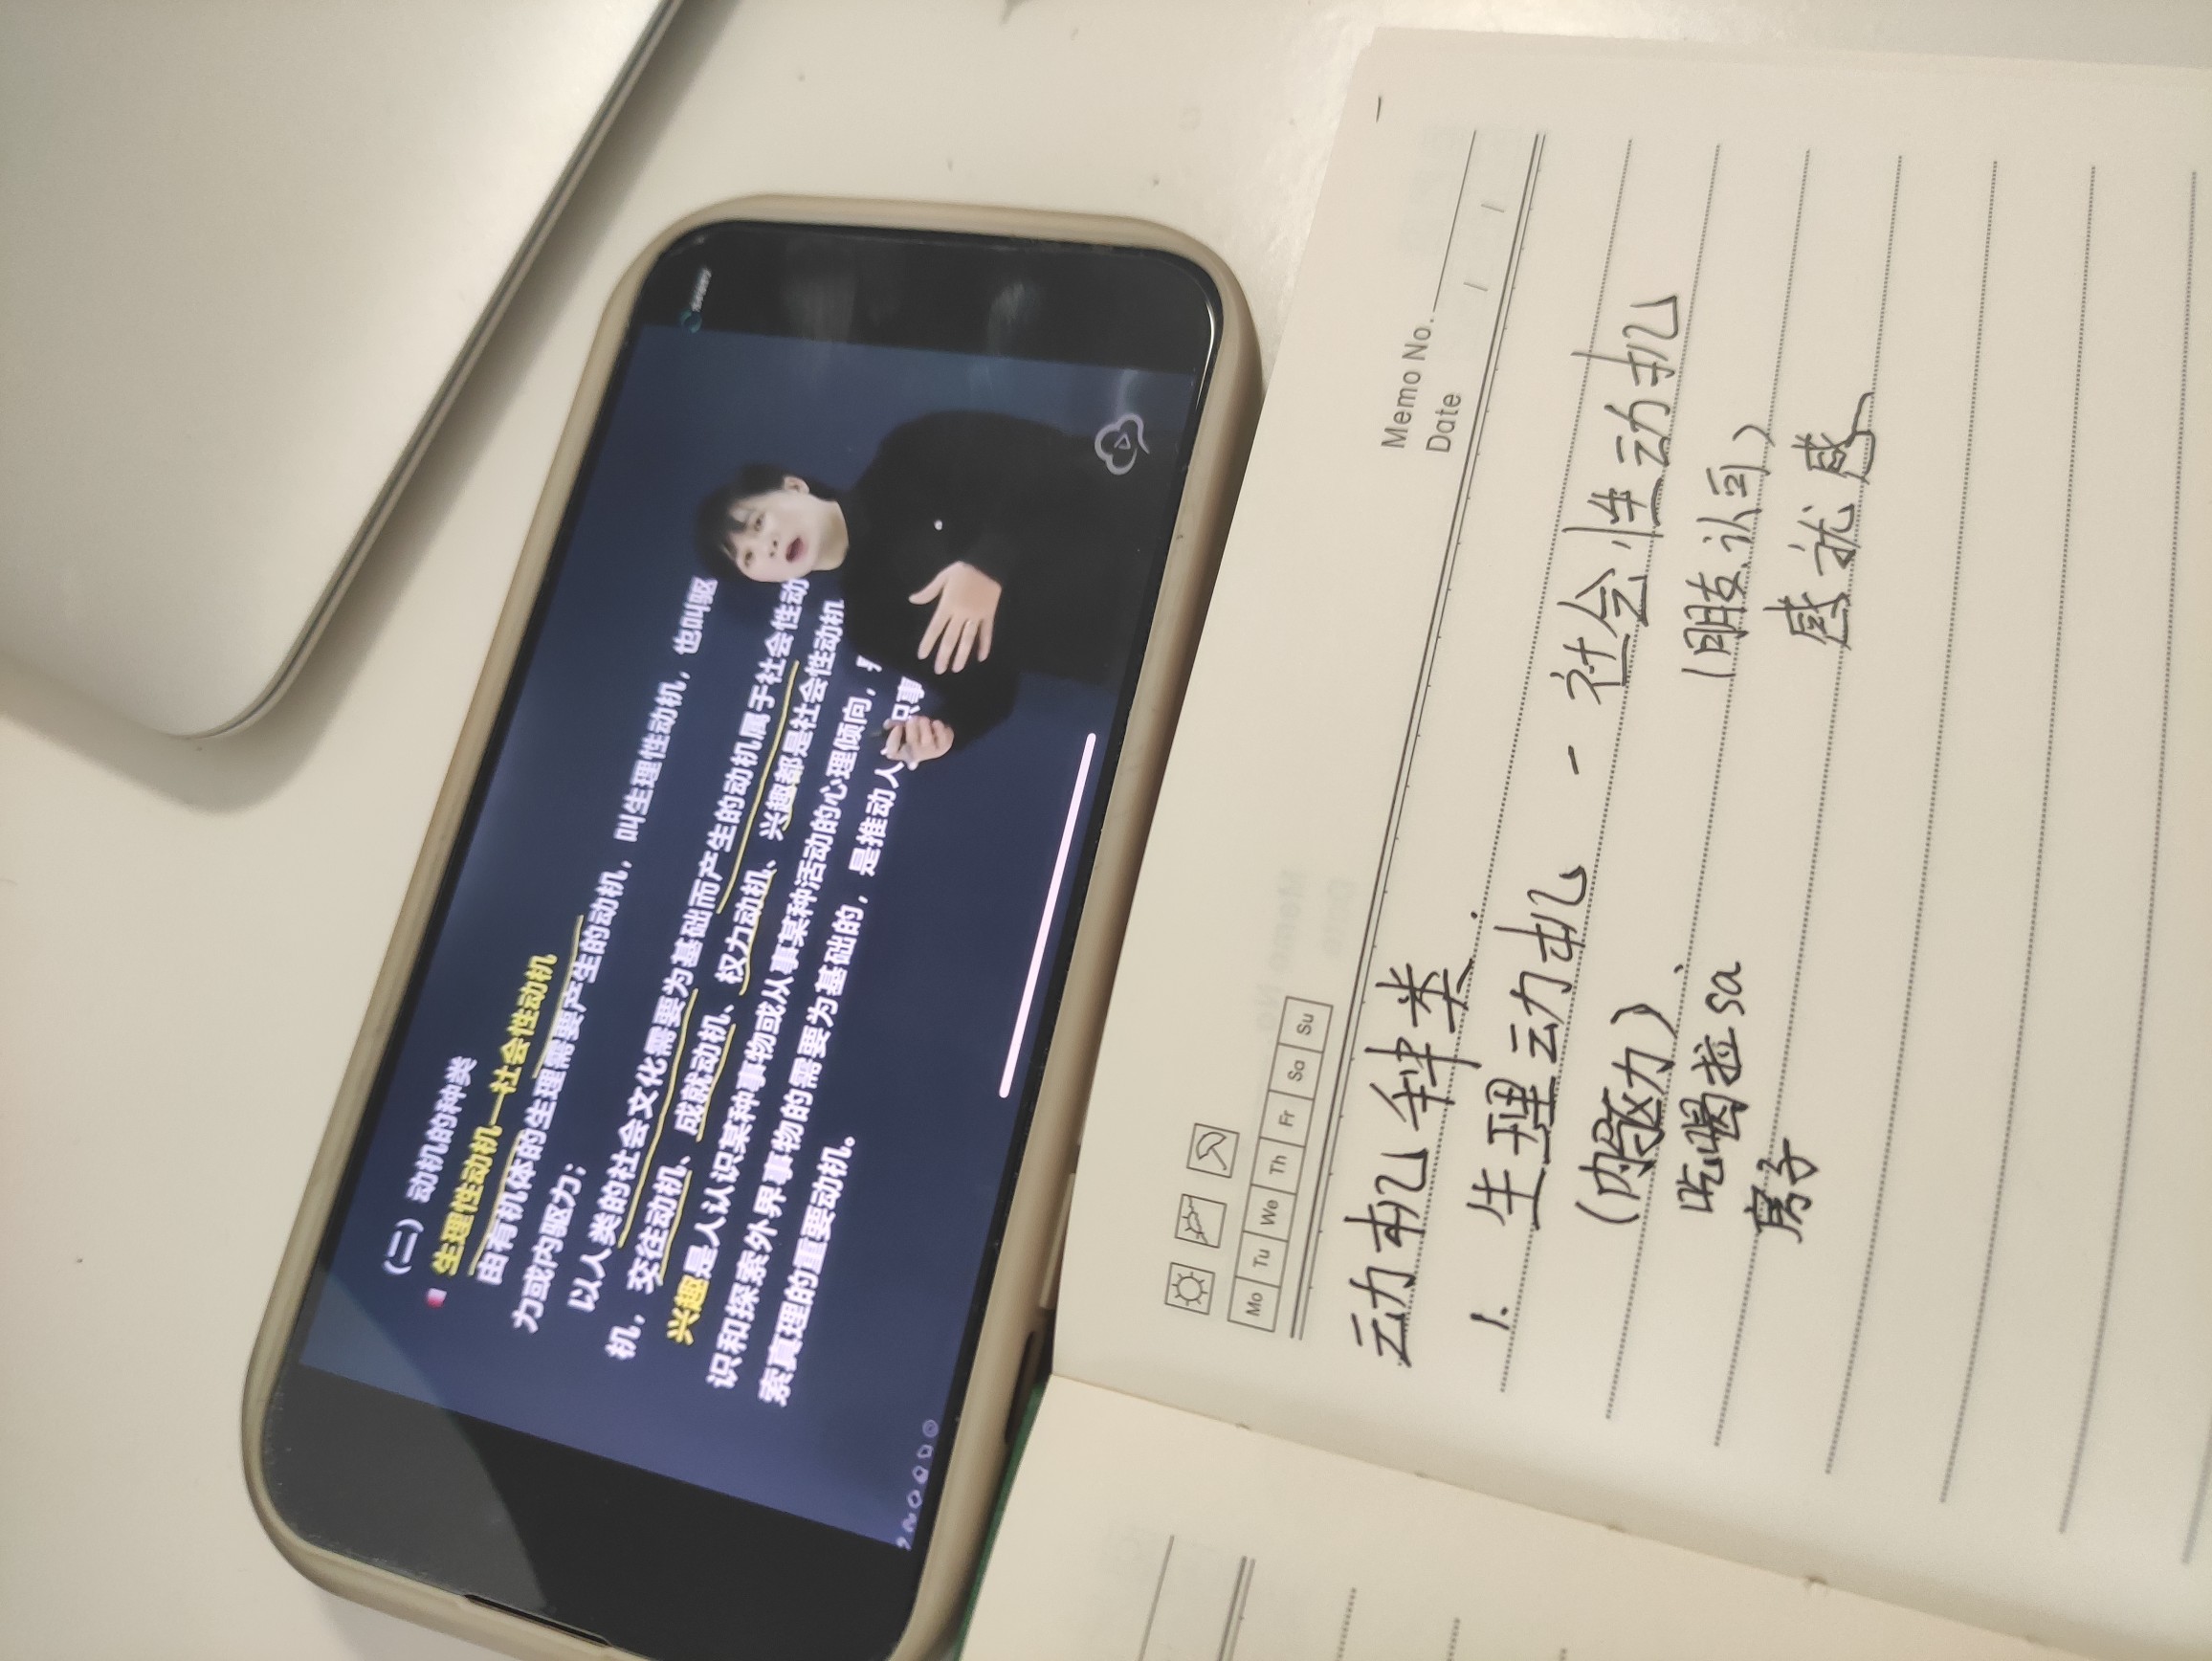 （二）动机的种类
生理性动机—社会性动机
由有机体的生理需要产生的动机，叫生理性动机，也叫驱
力或内驱力；
以人类的社会文化需要为基础而产生的动机属于社会性动
机，交往动机、成就动机、权力动机、兴趣都是社会性动机
兴趣是人认识某种事物或从事某种活动的心理倾向，
识和探索外界事物的需要为基础的，是推动人 识事
索真理的重要动机。
Memo No.
Date / /
Mo Tu We Th Fr Sa Su
动机种类.
1. 生理动机 - 社会性动机
(内驱力) (朋友、认可)
吃喝拉sa 感就感
房子